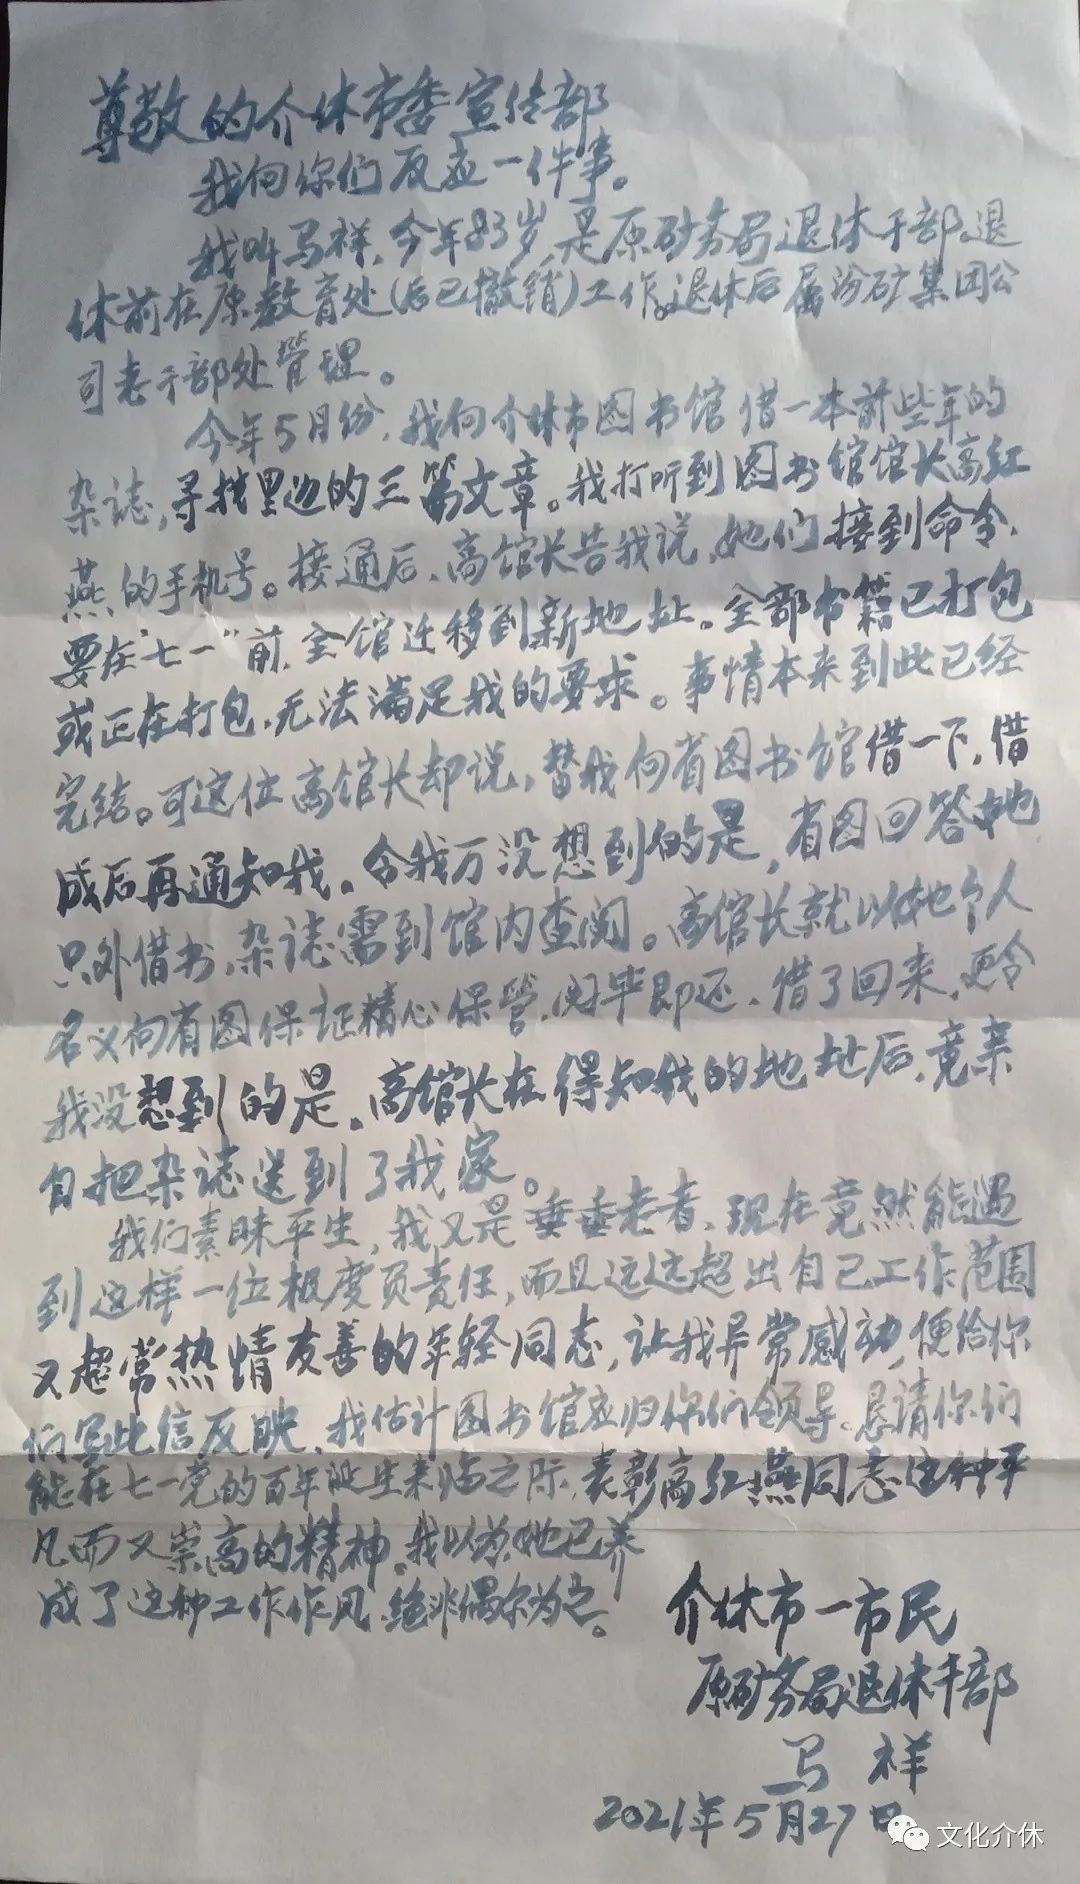 尊敬的介休市委宣传部
我向你们反应一件事。
我叫马祥,今年83岁,是原矿务局退休干部。退
休前在原教育处(后已撤销)工作。退休后属汾矿集团公
司老干部处管理。
今年5月份,我向介休市图书馆借一本前些年的
杂志,寻找里边的三篇文章。我打听到图书馆馆长高红
燕的手机号。接通后,高馆长告我说,她们接到命令,
要在"七一"前,全馆迁移到新地址。全部书籍已打包
或正在打包,无法满足我的要求。事情本来到此已经
完结。可这位高馆长却说,替我向省图书馆借一下,借
成后再通知我。令我万没想到的是,省图回答她
只外借书,杂志需到馆内查阅。高馆长就以她个人
名义向省图保证精心保管,阅毕即还,借了回来,更令
我没想到的是,高馆长在得知我的地址后,竟亲
自把杂志送到了我家。
我们素昧平生,我又是垂垂老者,现在竟然能遇
到这样一位极度负责任,而且远远超出自己工作范围
又超常热情友善的年轻同志,让我异常感动,便给你
们写此信反映,我估计图书馆应归你们领导。恳请你们
能在七一党的百年诞生来临之际,表彰高红燕同志这种平
凡而又崇高的精神。我以为她已养
成了这种工作作风,绝非偶尔为之。
介休市一市民
原矿务局退休干部
马祥
2021年5月27日
文化介休